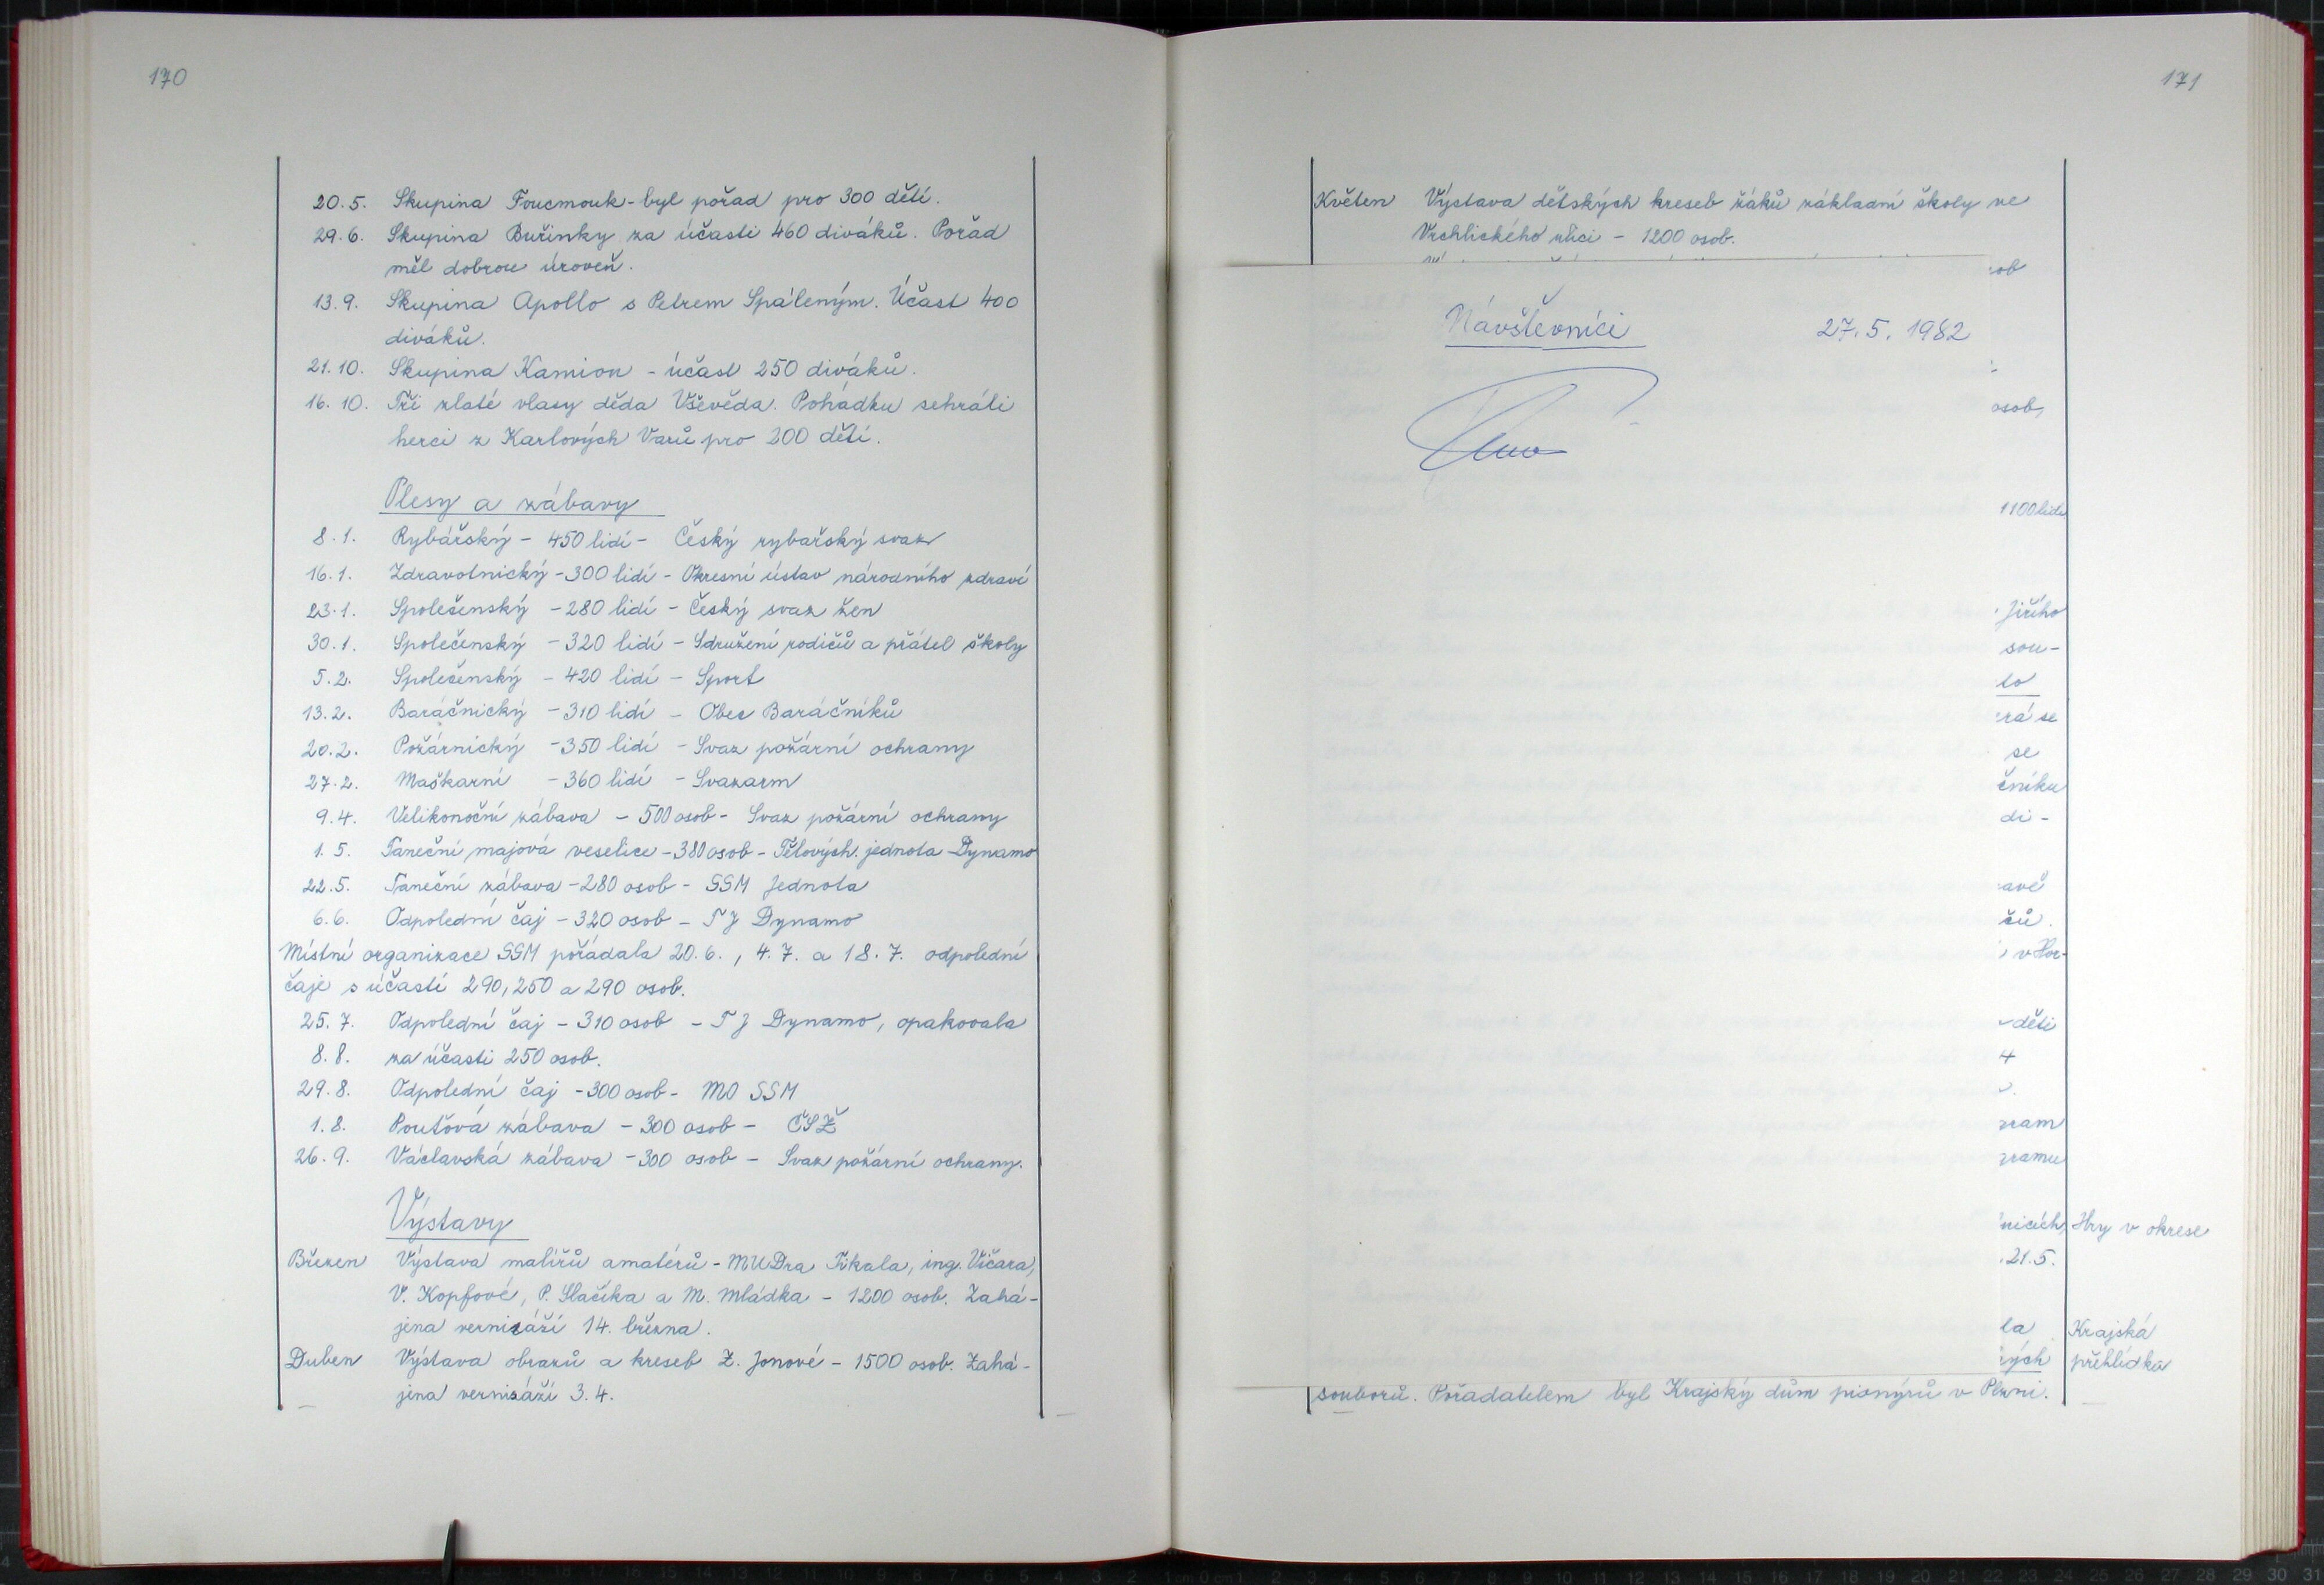 170
20.5. Skupina Foucmouk - byl pořad pro 300 dětí.
29.6. Skupina Buřinky za účasti 460 diváků. Pořad
měl dobrou úroveň.
13.9. Skupina Apollo s Petrem Spáleným. Účast 400
diváků.
21.10. Skupina Kamion - účast 250 diváků.
16.10. Tři zlaté vlasy děda Vševěda. Pohádku sehráli
herci z Karlových Varů pro 200 dětí.
Plesy a zábavy
8.1. Rybářský - 450 lidí - Český rybářský svaz
16.1. Zdravotnický - 300 lidí - Okresní ústav národního zdraví
23.1. Společenský - 280 lidí - Český svaz žen
30.1. Společenský - 320 lidí - Sdružení rodičů a přátel školy
5.2. Společenský - 420 lidí - Sport
13.2. Baráčnický - 310 lidí - Obec Baráčníků
20.2. Požárnický - 350 lidí - Svaz požární ochrany
27.2. Maškarní - 360 lidí - Svazarm
9.4. Velikonoční zábava - 500 osob - Svaz požární ochrany
1.5. Taneční majová veselice - 380 osob - Tělových. jednota Dynamo
22.5. Taneční zábava - 280 osob - SSM Jednota
6.6. Odpolední čaj - 320 osob - TJ Dynamo
Místní organizace SSM pořádala 20.6., 4.7. a 18.7. odpolední
čaje s účastí 290, 250 a 290 osob.
25.7. Odpolední čaj - 310 osob - TJ Dynamo, opakovala
8.8. za účasti 250 osob.
29.8. Odpolední čaj - 300 osob - MO SSM
1.8. Pouťová zábava - 300 osob - ČSŽ
26.9. Václavská zábava - 300 osob - Svaz požární ochrany.
Výstavy
Březen Výstava malířů amatérů - MUDra Tikala, ing. Vičara,
V. Kopfové, P. Slačíka a M. Mládka - 1200 osob. Zahá-
jena vernisáží 14. března.
Duben Výstava obrazů a kreseb Z. Jonové - 1500 osob. Zahá-
jena vernisáží 3.4.
171
Květen Výstava dětských kreseb žáků základní školy ve
Vrchlického ulici - 1200 osob.
ob
Návštevníci 27.5.1982
osob,
1100 lidí
Jiřího
sou-
to
rá se
se
čníku
di-
avě
ců.
v Hor-
děti
4
ram
gramu
nicích, Hry v okrese
21.5.
la Krajská
ých přehlídka
souborů. Pořadatelem byl Krajský dům pionýrů v Plzni.